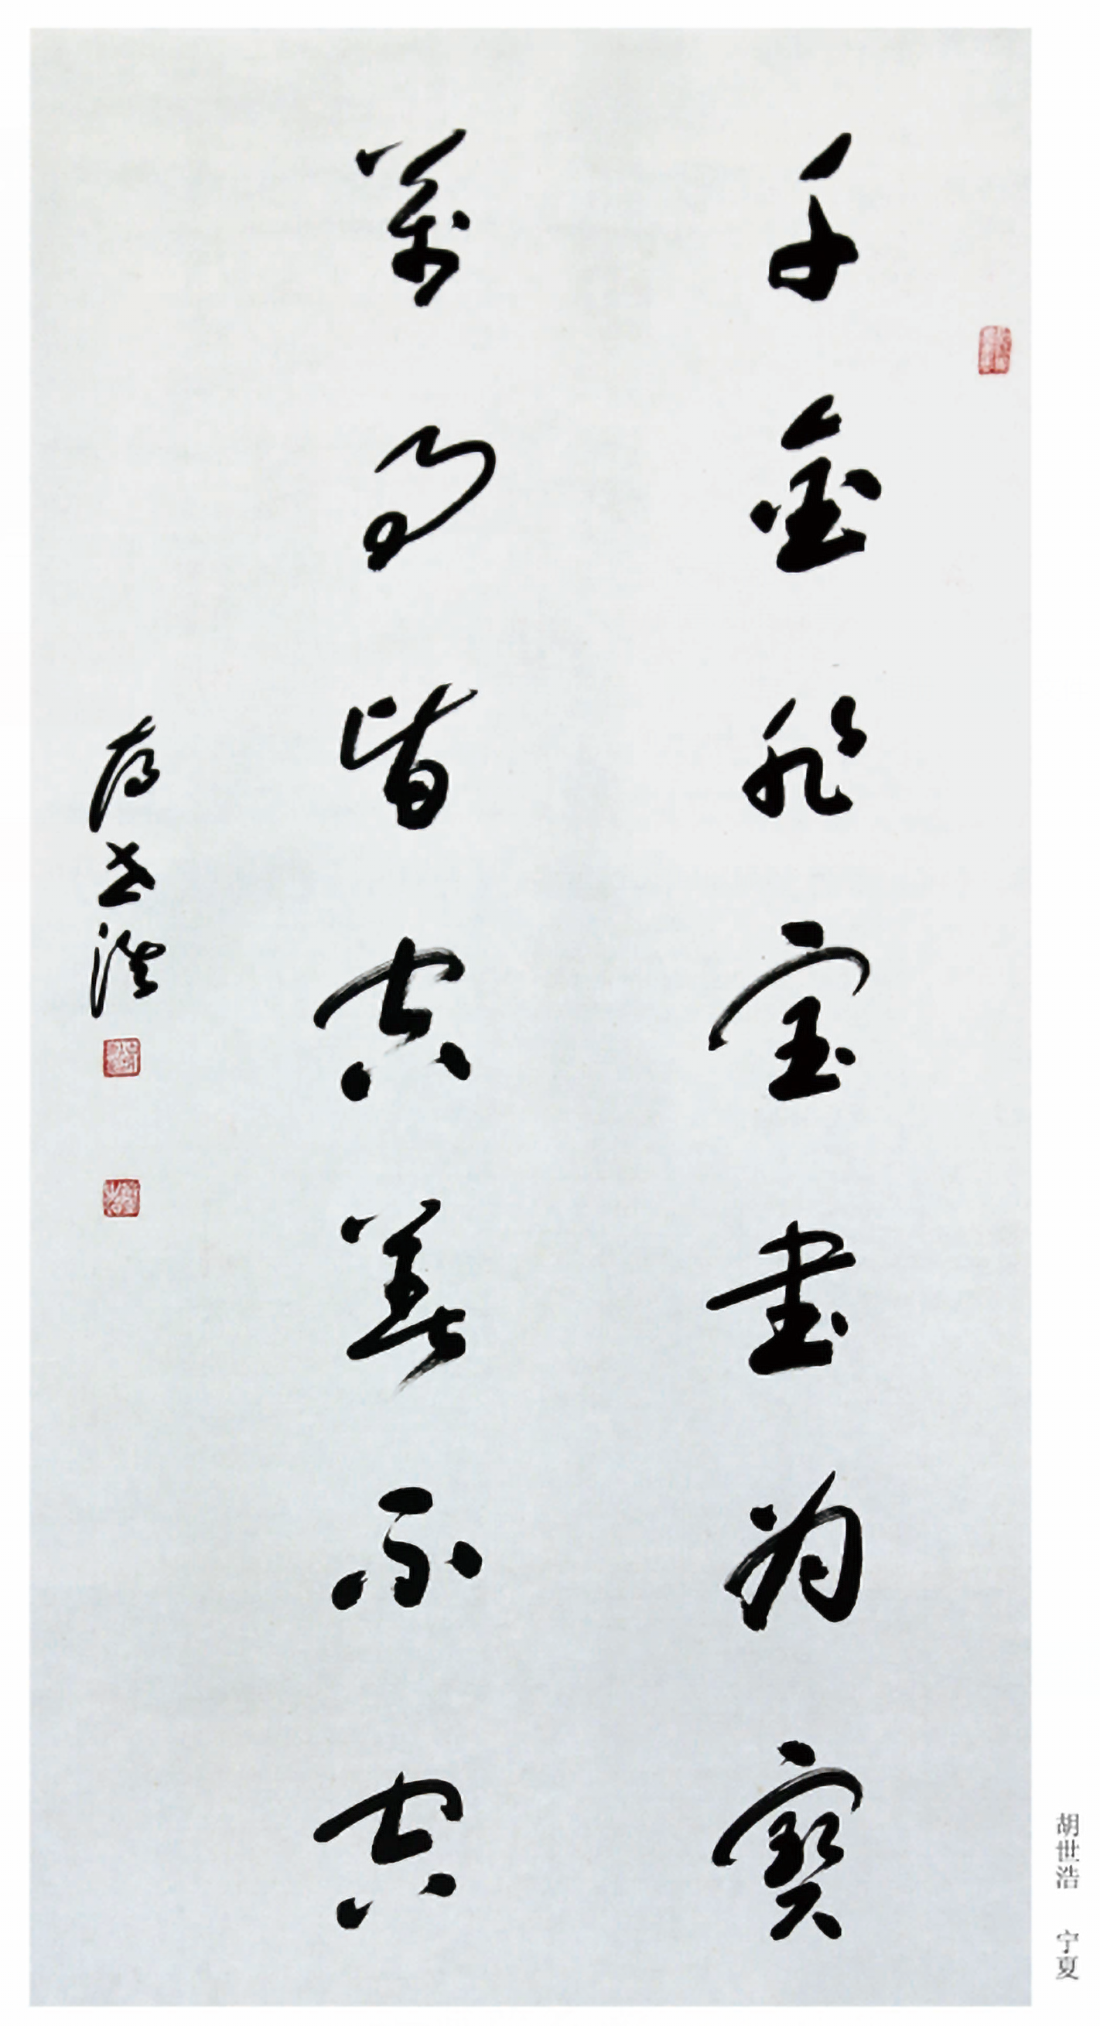 千金非宝书为寳
萬事皆空善不空
胡世浩
胡世浩 宁夏